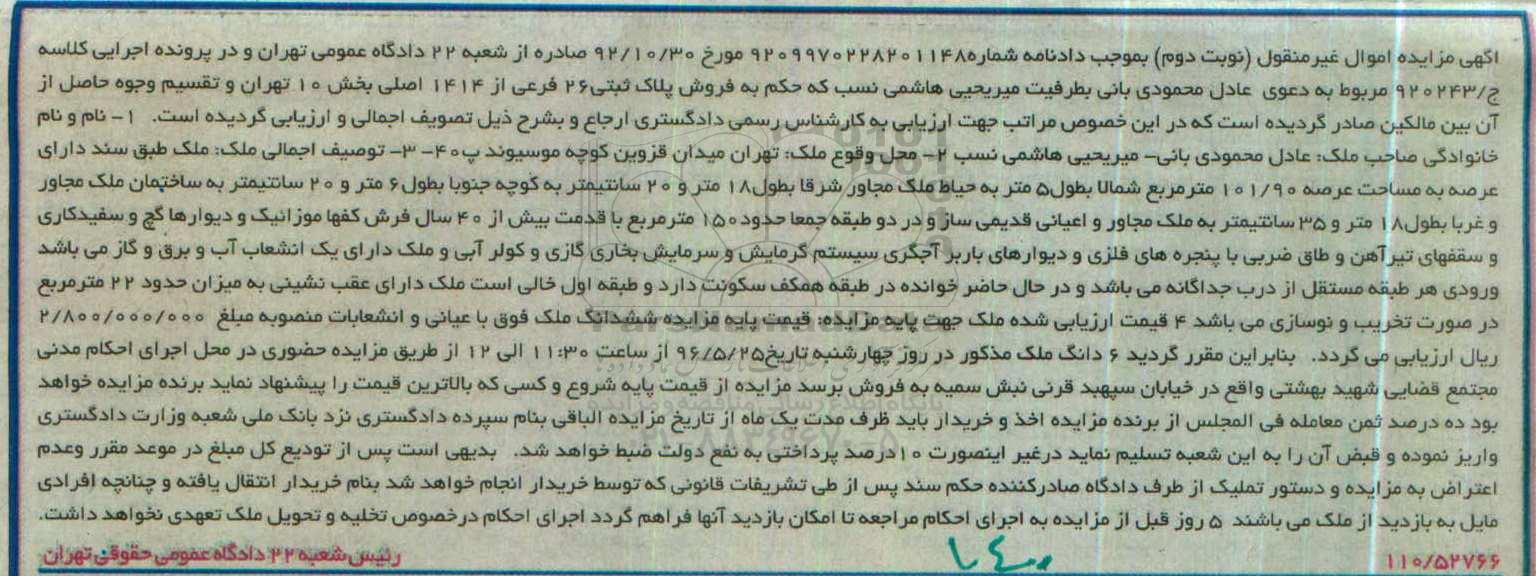 اگهی مزایده اموال غیرمنقول (نوبت دوم) بموجب دادنامه شماره۹۲۰۹۹۷۰۲۲۸۲۰۱۱۴۸ مورخ ۹۲/۱۰/۳۰ صادره از شعبه ۲۲ دادگاه عمومی تهران و در پرونده اجرایی کلاسه
ج/۹۲۰۲۴۳ مربوط به دعوی عادل محمودی بانی بطرفیت میریحیی هاشمی نسب که حکم به فروش پلاک ثبتی۲۶ فرعی از ۱۴۱۴ اصلی بخش ۱۰ تهران و تقسیم وجوه حاصل از
آن بین مالکین صادر گردیده است که در این خصوص مراتب جهت ارزیابی به کارشناس رسمی دادگستری ارجاع و بشرح ذیل تصویف اجمالی و ارزیابی گردیده است. ۱- نام و نام
خانوادگی صاحب ملک: عادل محمودی بانی- میریحیی هاشمی نسب ۲- محل وقوع ملک: تهران میدان قزوین کوچه موسیوند پ۴۰- ۳- توصیف اجمالی ملک: ملک طبق سند دارای
عرصه به مساحت عرصه ۱۰۱/۹۰ مترمربع شمالا بطول۵ متر به حیاط ملک مجاور شرقا بطول۱۸ متر و ۲۰ سانتیمتر به کوچه جنوبا بطول۶ متر و ۲۰ سانتیمتر به ساختمان ملک مجاور
و غربا بطول۱۸ متر و ۳۵ سانتیمتر به ملک مجاور و اعیانی قدیمی ساز و در دو طبقه جمعا حدود۱۵۰ مترمربع با قدمت بیش از ۴۰ سال فرش کفها موزائیک و دیوارها گچ و سفیدکاری
و سقفهای تیرآهن و طاق ضربی با پنجره های فلزی و دیوارهای باربر آجگری سیستم گرمایش و سرمایش بخاری گازی و کولر آبی و ملک دارای یک انشعاب آب و برق و گاز می باشد
ورودی هر طبقه مستقل از درب جداگانه می باشد و در حال حاضر خوانده در طبقه همکف سکونت دارد و طبقه اول خالی است ملک دارای عقب نشینی به میزان حدود ۲۲ مترمربع
در صورت تخریب و نوسازی می باشد ۴ قیمت ارزیابی شده ملک جهت پایه مزایده: قیمت پایه مزایده ششدانگ ملک فوق با عیانی و انشعابات منصوبه مبلغ ۲/۸۰۰/۰۰۰/۰۰۰
ریال ارزیابی می گردد. بنابراین مقرر گردید ۶ دانگ ملک مذکور در روز چهارشنبه تاریخ۹۶/۵/۲۵ از ساعت ۱۱:۳۰ الی ۱۲ از طریق مزایده حضوری در محل اجرای احکام مدنی
مجتمع قضایی شهید بهشتی واقع در خیابان سپهبد قرنی نبش سمیه به فروش برسد مزایده از قیمت پایه شروع و کسی که بالاترین قیمت را پیشنهاد نماید برنده مزایده خواهد
بود ده درصد ثمن معامله فی المجلس از برنده مزایده اخذ و خریدار باید ظرف مدت یک ماه از تاریخ مزایده الباقی بنام سپرده دادگستری نزد بانک ملی شعبه وزارت دادگستری
واریز نموده و قبض آن را به این شعبه تسلیم نماید درغیر اینصورت ۱۰درصد پرداختی به نفع دولت ضبط خواهد شد. بدیهی است پس از تودیع کل مبلغ در موعد مقرر وعدم
اعتراض به مزایده و دستور تملیک از طرف دادگاه صادرکننده حکم سند پس از طی تشریفات قانونی که توسط خریدار انجام خواهد شد بنام خریدار انتقال یافته و چنانچه افرادی
مایل به بازدید از ملک می باشند ۵ روز قبل از مزایده به اجرای احکام مراجعه تا امکان بازدید آنها فراهم گردد اجرای احکام درخصوص تخلیه و تحویل ملک تعهدی نخواهد داشت.
۱۱۰/۵۲۷۶۶ رئیس شعبه ۲۲ دادگاه عمومی حقوقی تهران